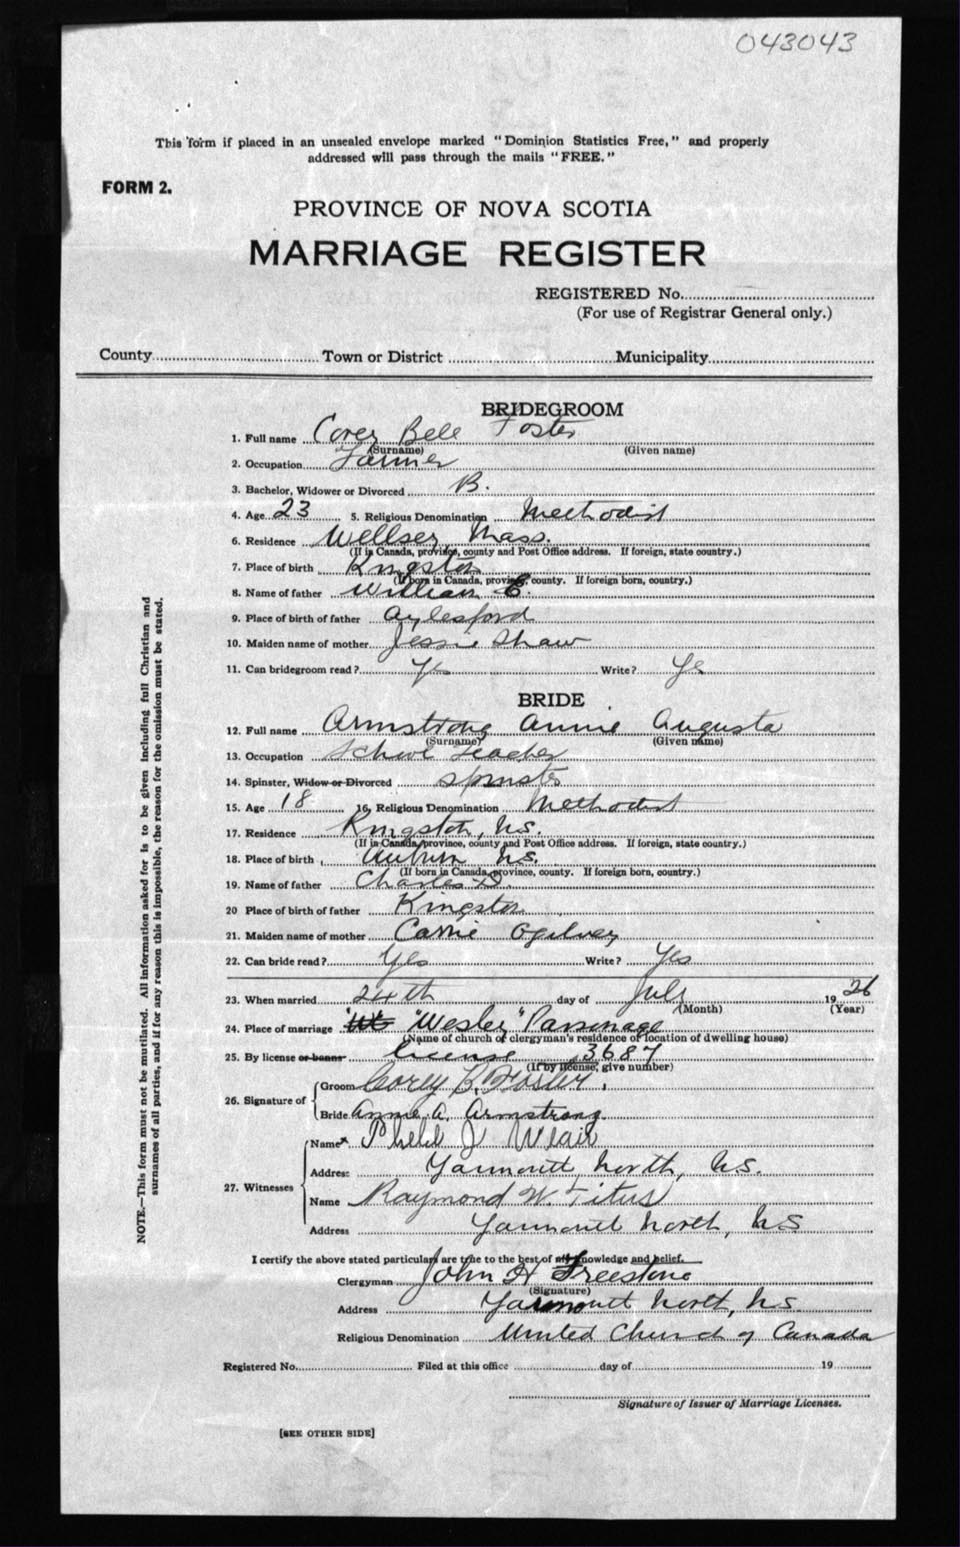 043043
This form if placed in an unsealed envelope marked "Dominion Statistics Free," and properly
addressed will pass through the mails "FREE."
FORM 2.
PROVINCE OF NOVA SCOTIA
MARRIAGE REGISTER
REGISTERED No.
(For use of Registrar General only.)
County Town or District Municipality
BRIDEGROOM
1. Full name Corey Bell Foster
(Surname) (Given name)
2. Occupation Farmer
3. Bachelor, Widower or Divorced B.
4. Age 23 5. Religious Denomination Methodist
6. Residence Mass.
(If in Canada, province, county and Post Office address. If foreign, state country.)
7. Place of birth Kingston
(If born in Canada, province, county. If foreign born, country.)
8. Name of father William
9. Place of birth of father Aylesford
10. Maiden name of mother Jessie Shaw
11. Can bridegroom read? Yes Write? Yes
BRIDE
12. Full name Armstrong Annie Augusta
(Surname) (Given name)
13. Occupation School Teacher
14. Spinster, Widow or Divorced Spinster
15. Age 18 16. Religious Denomination Methodist
17. Residence Kingston, N.S.
(If in Canada, province, county and Post Office address. If foreign, state country.)
18. Place of birth Auburn N.S.
(If born in Canada, province, county. If foreign born, country.)
19. Name of father Charles D.
20 Place of birth of father Kingston
21. Maiden name of mother Carrie Ogilvey
22. Can bride read? Yes Write? Yes
23. When married 24th day of July 1926
(Month) (Year)
24. Place of marriage "Wesley" Parsonage
(Name of church or clergyman's residence or location of dwelling house)
25. By license or banns license 3687
(If by license, give number)
26. Signature of
Groom Corey B. Foster
Bride Annie A. Armstrong
27. Witnesses
Name J
Address Yarmouth North, N.S.
Name Raymond W. Titus
Address Yarmouth North, N.S
I certify the above stated particulars are true to the best of my knowledge and belief.
Clergyman John H Freestone
(Signature)
Address Yarmouth North, N.S.
Religious Denomination United Church of Canada
Registered No. Filed at this office day of 19
Signature of Issuer of Marriage Licenses.
[SEE OTHER SIDE]
NOTE.—This form must not be mutilated. All information asked for is to be given including full Christian and
surnames of all parties, and if for any reason this is impossible, the reason for the omission must be stated.